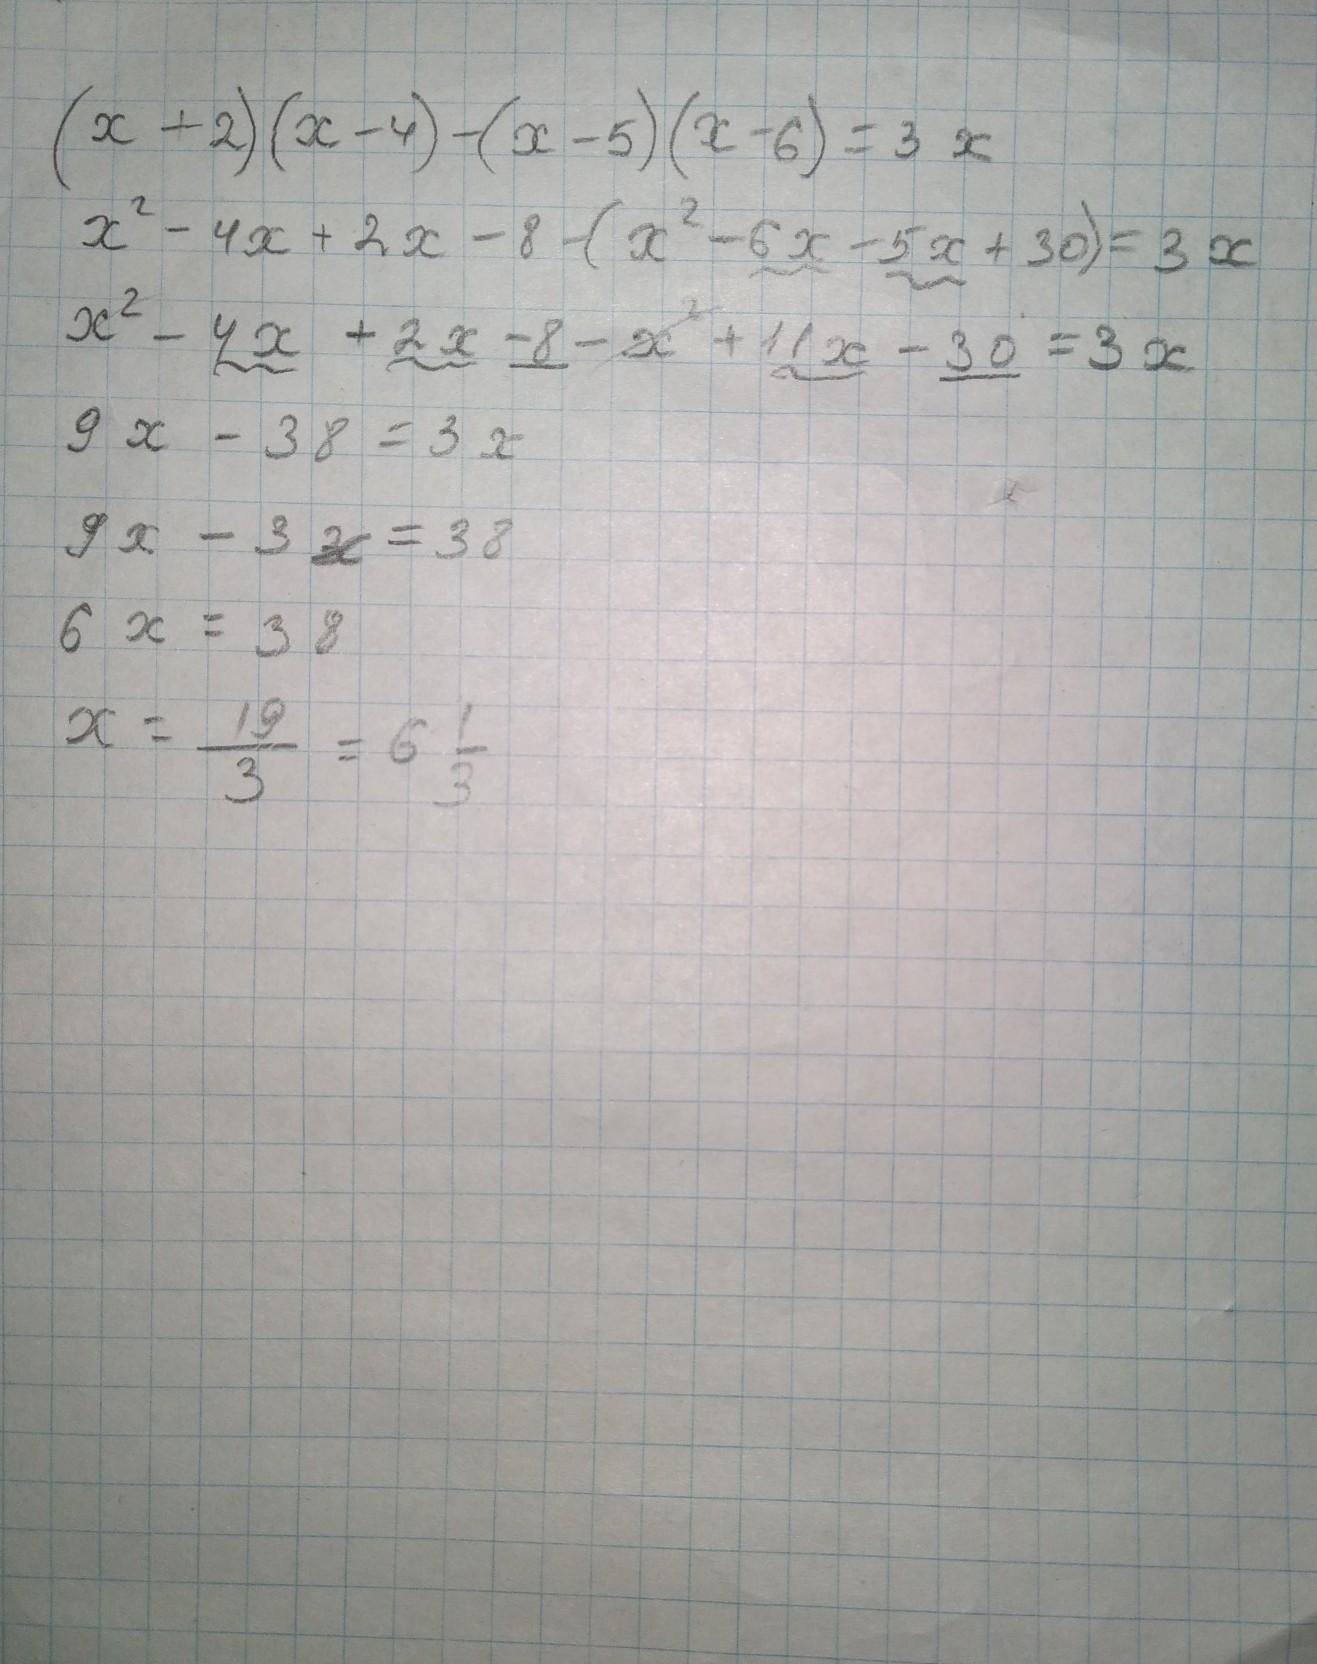 (x + 2)(x - 4) - (x - 5)(x - 6) = 3x
x² - 4x + 2x - 8 - (x² - 6x - 5x + 30) = 3x
x² - 4x + 2x - 8 - x² + 11x - 30 = 3x
9x - 38 = 3x
9x - 3x = 38
6x = 38
x = 19/3 = 6 1/3